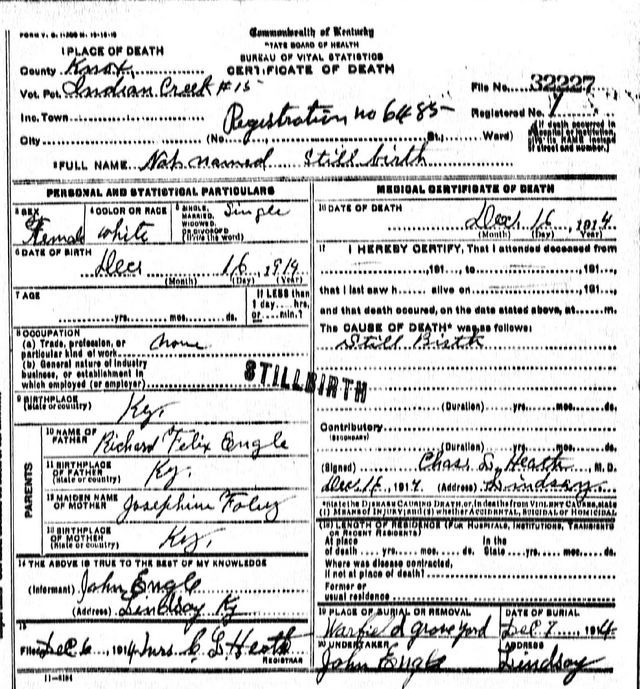 FORM V. S. 1-
Commonwealth of Kentucky
STATE BOARD OF HEALTH
BUREAU OF VITAL STATISTICS
CERTIFICATE OF DEATH
1 PLACE OF DEATH
County Knox
Vot. Pct. Indian Creek #15
Inc. Town
City
Registration no 6485
(No. St., Ward)
File No. 32227
Registered No.
[If death occurred in a hospital or institution, give its NAME instead of street and number.]
2 FULL NAME Not named Still birth
PERSONAL AND STATISTICAL PARTICULARS
3 SEX
Female
4 COLOR OR RACE
White
5 SINGLE, MARRIED, WIDOWED OR DIVORCED (Write the word)
Single
6 DATE OF BIRTH
Dec 16 1914
(Month) (Day) (Year)
7 AGE
yrs. mos. ds.
If LESS than 1 day hrs. or min.?
8 OCCUPATION
(a) Trade, profession, or particular kind of work none
(b) General nature of industry business, or establishment in which employed (or employer)
STILLBIRTH
9 BIRTHPLACE
(State or country) Ky.
PARENTS
10 NAME OF FATHER Richard Felix Engle
11 BIRTHPLACE OF FATHER
(State or country) Ky.
12 MAIDEN NAME OF MOTHER Josephine Foley
13 BIRTHPLACE OF MOTHER
(State or country) Ky.
14 THE ABOVE IS TRUE TO THE BEST OF MY KNOWLEDGE
(Informant) John Engle
(Address) Lindsay Ky
15
Filed Dec 6 1914 Mrs. C L Heath
REGISTRAR
11-6184
MEDICAL CERTIFICATE OF DEATH
16 DATE OF DEATH
Dec 16 1914
(Month) (Day) (Year)
17 I HEREBY CERTIFY, That I attended deceased from
191 , to 191 ,
that I last saw h alive on , 191 ,
and that death occured, on the date stated above, at m.
The CAUSE OF DEATH* was as follows:
Still Birth
(Duration) yrs. mos. ds.
Contributory
(SECONDARY)
(Duration) yrs. mos. ds.
(Signed) Chas. L. Heath M. D.
1914 (Address) Lindsay
*State the DISEASE CAUSING DEATH, or, in deaths from VIOLENT CAUSES, state (1) MEANS OF INJURY; and (2) whether ACCIDENTAL, SUICIDAL or HOMICIDAL.
18 LENGTH OF RESIDENCE (FOR HOSPITALS, INSTITUTIONS, TRANSIENTS OR RECENT RESIDENTS)
At place of death yrs. mos. ds. In the State yrs. mos. ds.
Where was disease contracted,
if not at place of death?
Former or
usual residence
19 PLACE OF BURIAL OR REMOVAL
Warfield graveyard
DATE OF BURIAL
Dec 7 1914
20 UNDERTAKER
John Engle
ADDRESS
Lindsay